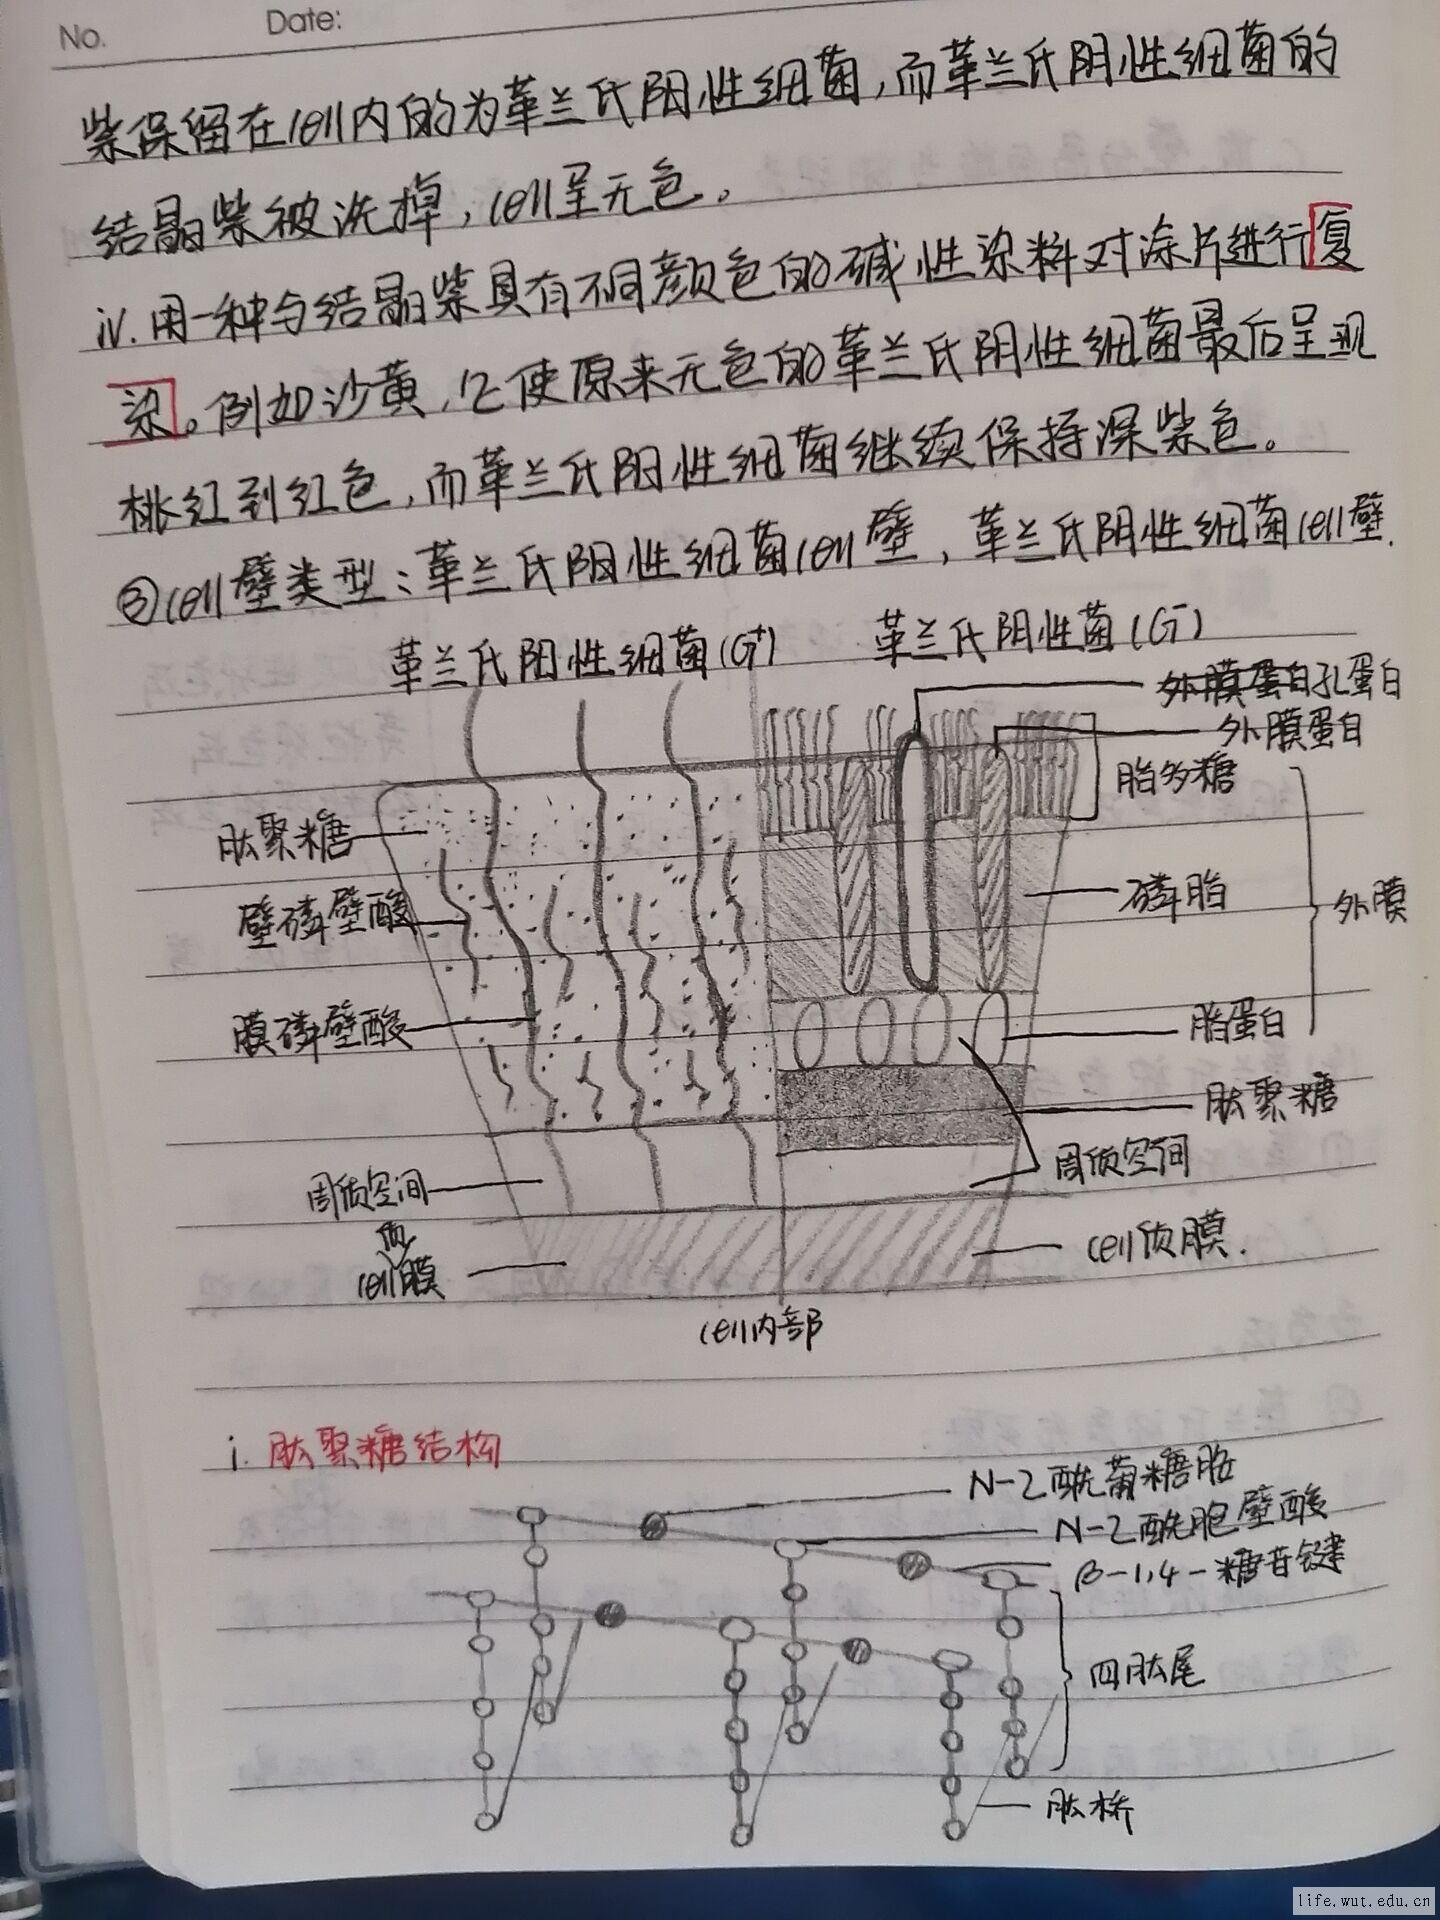 No.
Date:
紫保留在cell内的为革兰氏阳性细菌,而革兰氏阴性细菌的
结晶紫被洗掉,cell呈无色。
iv.用一种与结晶紫具有不同颜色的碱性染料对涂片进行复
染。例如沙黄,它使原来无色的革兰氏阴性细菌最后呈现
桃红到红色,而革兰氏阳性细菌继续保持深紫色。
③cell壁类型:革兰氏阳性细菌cell壁,革兰氏阴性细菌cell壁.
革兰氏阳性细菌(G⁺) 革兰氏阴性菌(G⁻)
外膜蛋白孔蛋白
外膜蛋白
脂多糖
肽聚糖
磷脂
壁磷壁酸
外膜
膜磷壁酸
脂蛋白
肽聚糖
周质空间
周质空间
cell质膜
cell质膜.
cell内部
i.肽聚糖结构
N-乙酰葡糖胺
N-乙酰胞壁酸
β-1,4-糖苷键
四肽尾
肽桥
life.wut.edu.cn